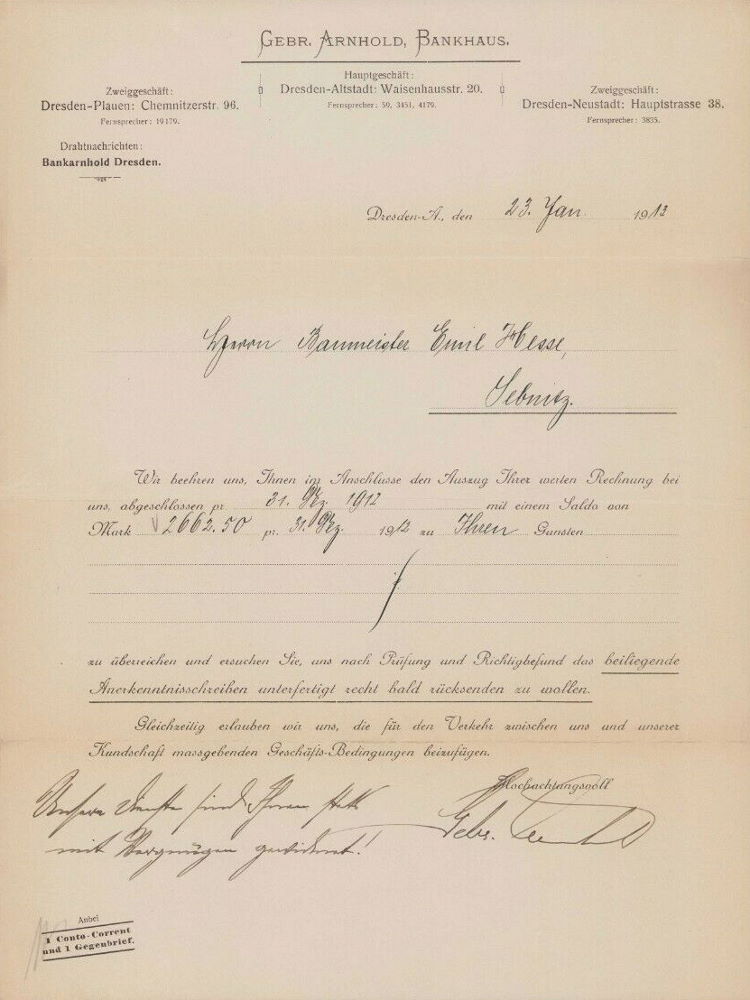 GEBR. ARNHOLD, BANKHAUS.
Hauptgeschäft:
Dresden-Altstadt: Waisenhausstr. 20.
Fernsprecher: 59, 3451, 4179.
Zweiggeschäft:
Dresden-Plauen: Chemnitzerstr. 96.
Fernsprecher: 19179.
Zweiggeschäft:
Dresden-Neustadt: Hauptstrasse 38.
Fernsprecher: 3835.
Drahtnachrichten:
Bankarnhold Dresden.
Dresden-A., den 23. Jan. 1913
Herrn Baumeister Emil Hesse,
Sebnitz.
Wir beehren uns, Ihnen im Anschlusse den Auszug Ihrer werten Rechnung bei
uns, abgeschlossen pr 31. Dez. 1912 mit einem Saldo von
Mark 2662.50 pr. 31. Dez. 1912 zu Ihren Gunsten
zu überreichen und ersuchen Sie, uns nach Prüfung und Richtigbefund das beiliegende
Anerkenntnisschreiben unterfertigt recht bald rücksenden zu wollen.
Gleichzeitig erlauben wir uns, die für den Verkehr zwischen uns und unserer
Kundschaft massgebenden Geschäfts-Bedingungen beizufügen.
Hochachtungsvoll
Gebr. Arnhold
Unsere Dienste sind Ihnen stets
mit Vergnügen gewidmet!
Anbei
1 Conto-Corrent
und 1 Gegenbrief.